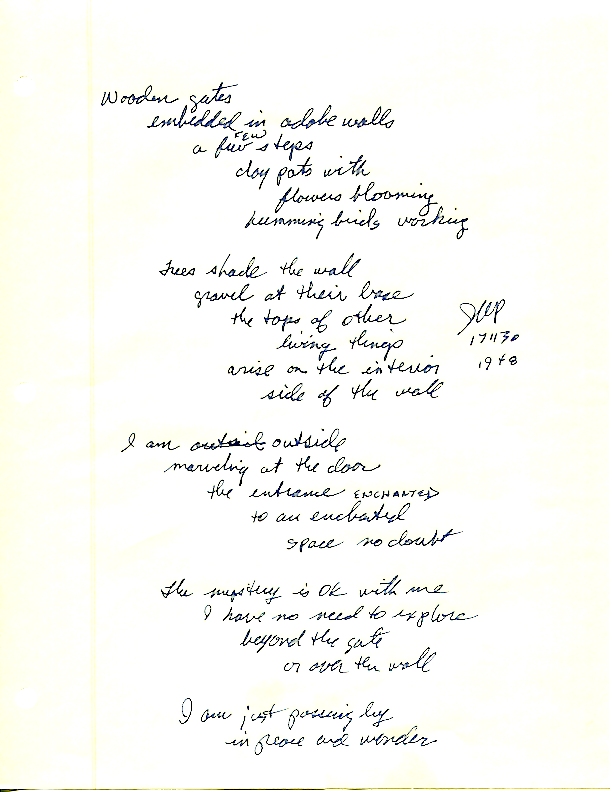 Wooden gates
embedded in adobe walls
a few FEW steps
clay pots with
flowers blooming
humming birds working
trees shade the wall
gravel at their base
the tops of other
living things
arise on the interior
side of the wall
JWP
1948
I am outside outside
marveling at the door
the entrance ENCHANTED
to an enchanted
space no doubt
the mystery is OK with me
I have no need to explore
beyond the gate
or over the wall
I am just passing by
in peace and wonder